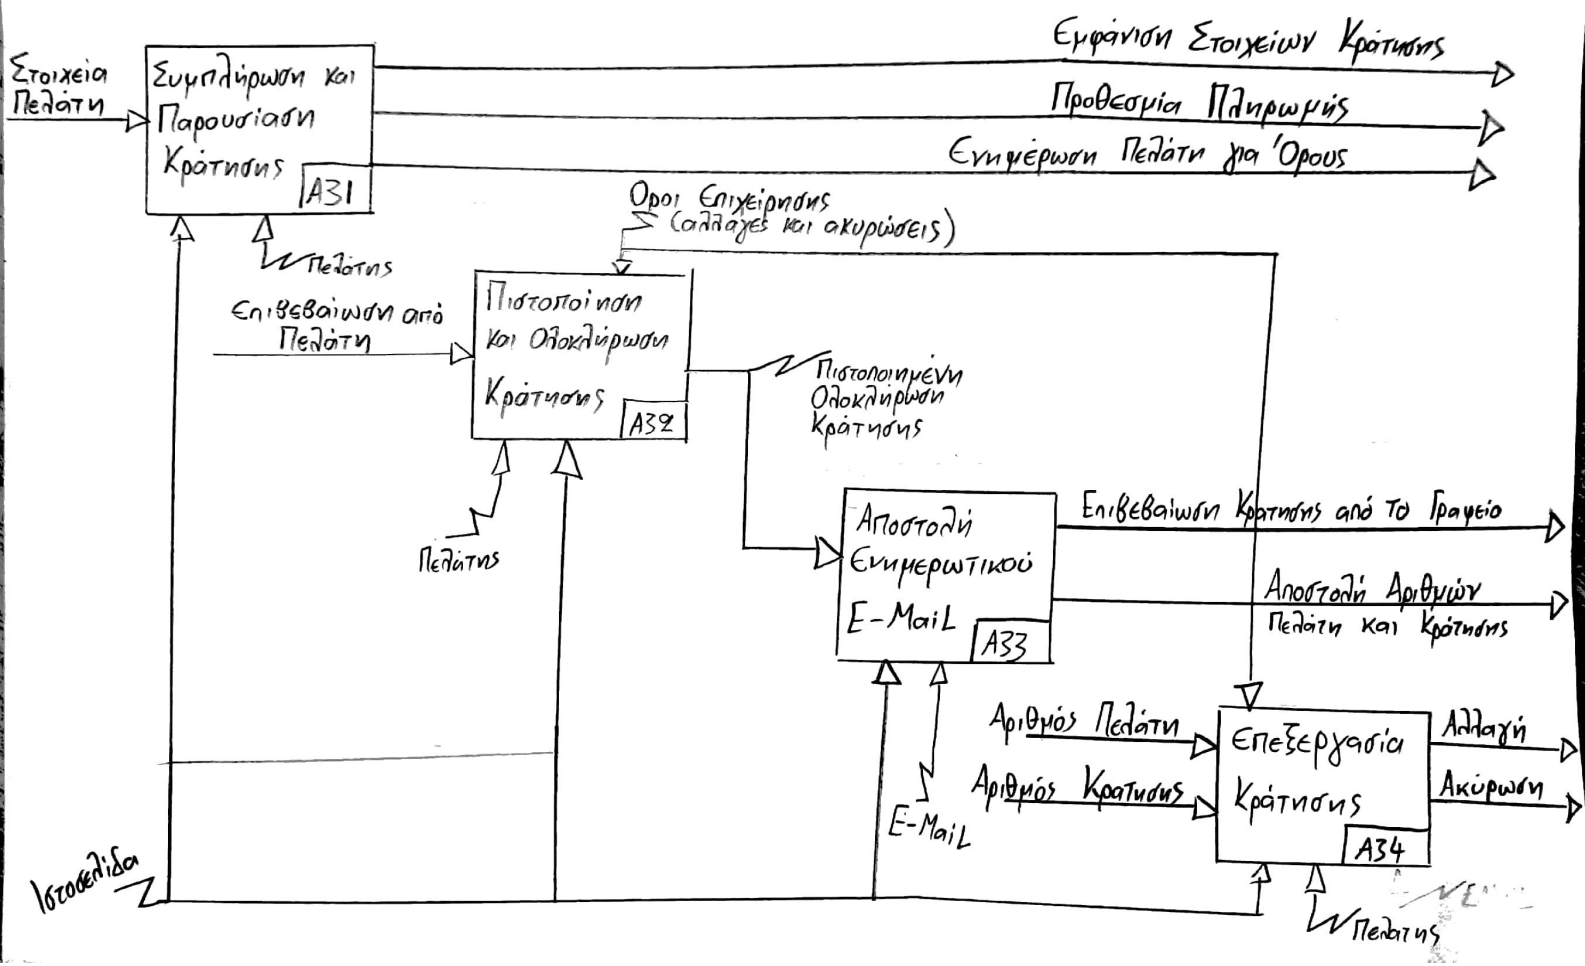 Στοιχεία
Πελάτη
Συμπλήρωση και
Παρουσίαση
Κράτησης
A31
Εμφάνιση Στοιχείων Κράτησης
Προθεσμία Πληρωμής
Ενημέρωση Πελάτη για Όρους
Πελάτης
Όροι Επιχείρησης
(αλλαγές και ακυρώσεις)
Επιβεβαίωση από
Πελάτη
Πιστοποίηση
και Ολοκλήρωση
Κράτησης
A32
Πιστοποιημένη
Ολοκλήρωση
Κράτησης
Πελάτης
Αποστολή
Ενημερωτικού
E-Mail
A33
Επιβεβαίωση Κράτησης από το Γραφείο
Αποστολή Αριθμών
Πελάτη και Κράτησης
E-Mail
Αριθμός Πελάτη
Αριθμός Κράτησης
Επεξεργασία
Κράτησης
A34
Αλλαγή
Ακύρωση
Πελάτης
Ιστοσελίδα